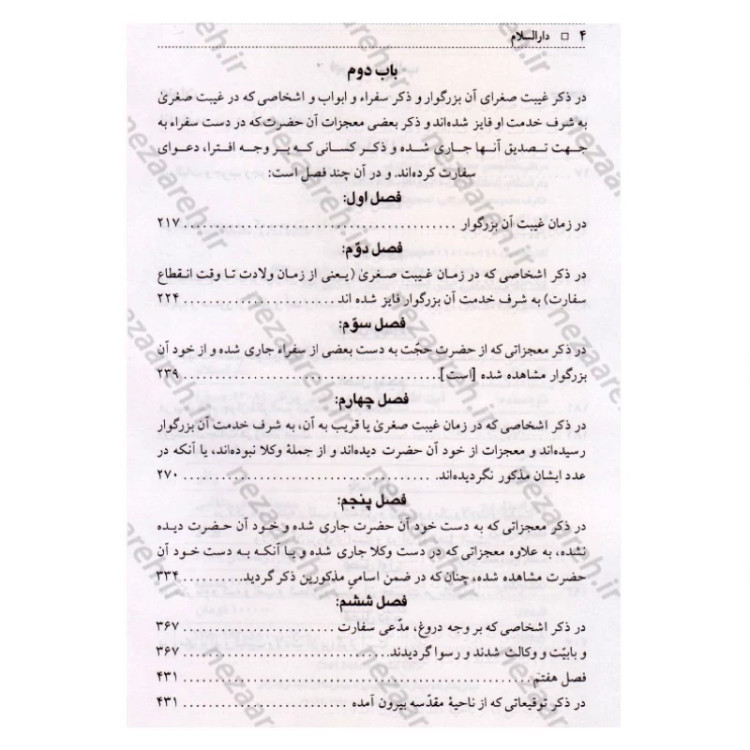 ۴ □ دارالسلام
باب دوم
در ذکر غیبت صغرای آن بزرگوار و ذکر سفراء و ابواب و اشخاصی که در غیبت صغریٰ
به شرف خدمت او فایز شده‌اند و ذکر بعضی معجزات آن حضرت که در دست سفراء به
جهت تصدیق آنها جاری شده و ذکر کسانی که بر وجه افترا، دعوای
سفارت کرده‌اند. و در آن چند فصل است:
فصل اول:
در زمان غیبت آن بزرگوار ........ ۲۱۷
فصل دوّم:
در ذکر اشخاصی که در زمان غیبت صغریٰ (یعنی از زمان ولادت تا وقت انقطاع
سفارت) به شرف خدمت آن بزرگوار فایز شده اند ........ ۲۲۴
فصل سوّم:
در ذکر معجزاتی که از حضرت حجّت به دست بعضی از سفراء جاری شده و از خود آن
بزرگوار مشاهده شده [است] ........ ۲۳۹
فصل چهارم:
در ذکر اشخاصی که در زمان غیبت صغریٰ یا قریب به آن، به شرف خدمت آن بزرگوار
رسیده‌اند و معجزات از خود آن حضرت دیده‌اند و از جملهٔ وکلا نبوده‌اند، یا آنکه در
عدد ایشان مذکور نگردیده‌اند. ........ ۲۷۰
فصل پنجم:
در ذکر معجزاتی که به دست خود آن حضرت جاری شده و خود آن حضرت دیده
نشده، به علاوه معجزاتی که در دست وکلا جاری شده و یا آنکه به دست خود آن
حضرت مشاهده شده، چنان که در ضمن اسامی مذکورین ذکر گردید ........ ۳۳۴
فصل ششم:
در ذکر اشخاصی که بر وجه دروغ، مدّعی سفارت ........ ۳۶۷
و بابیّت و وکالت شدند و رسوا گردیدند ........ ۳۶۷
فصل هفتم ........ ۴۳۱
در ذکر توقیعاتی که از ناحیهٔ مقدّسه بیرون آمده ........ ۴۳۱
nezaareh.ir